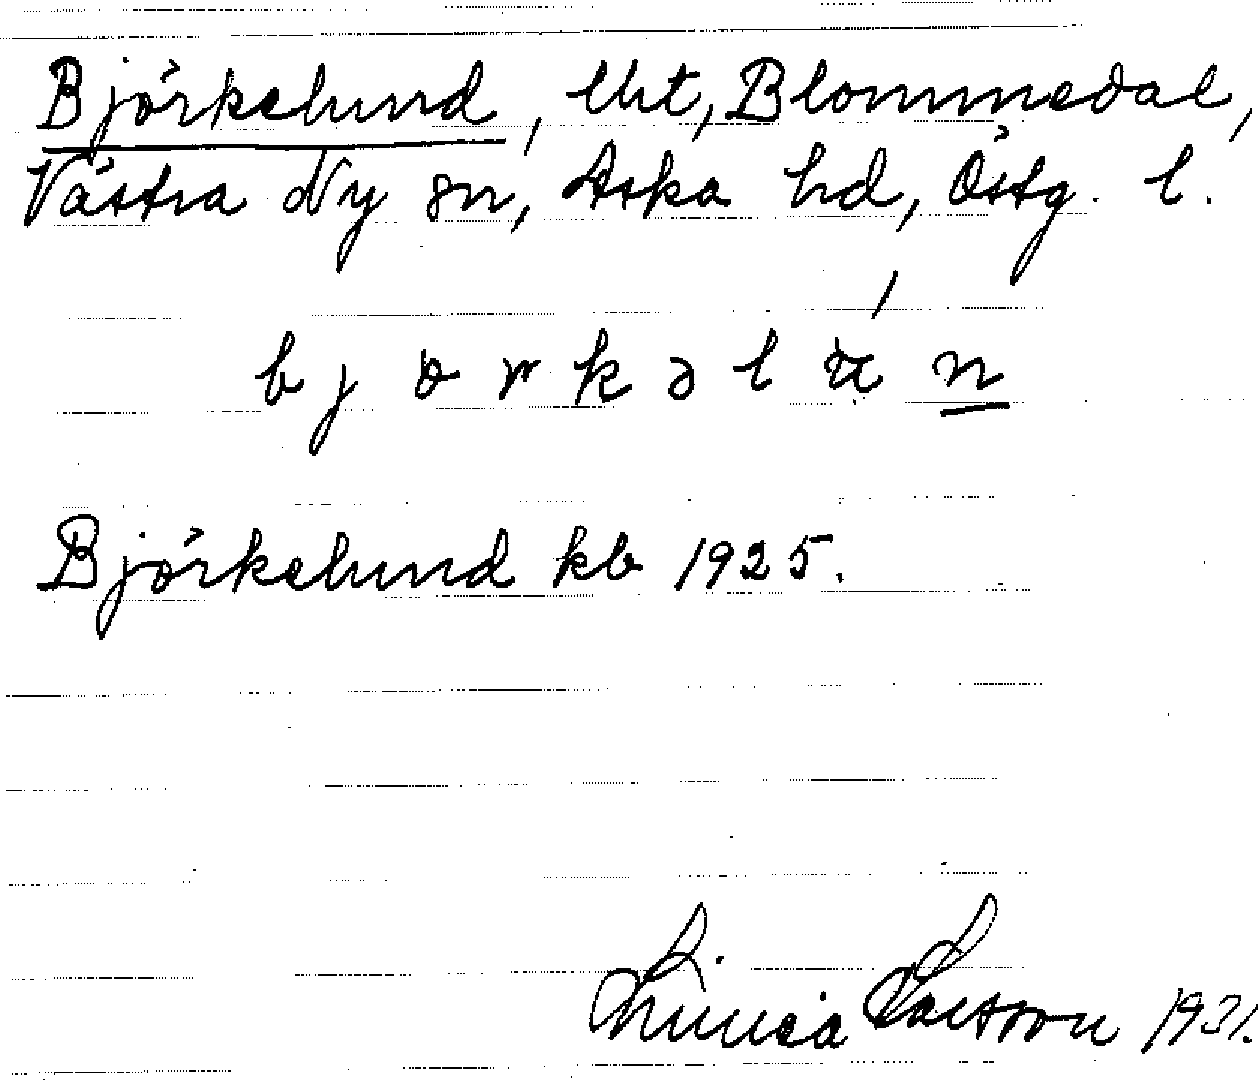 Björkelund, lht, Blommedal,
Västra Ny sn, Aska hd, Östg. l.
b j ɵ r k ə l u n
Björkelund kb 1925.
Linnea Larsson 1931.